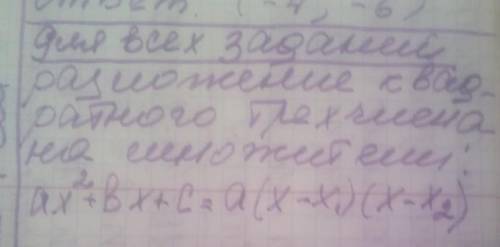 Ответ: (-4; -6)
для всех заданий
разложение квад-
ратного трехчлена
на множители:
ax²+bx+c=a(x-x₁)(x-x₂)